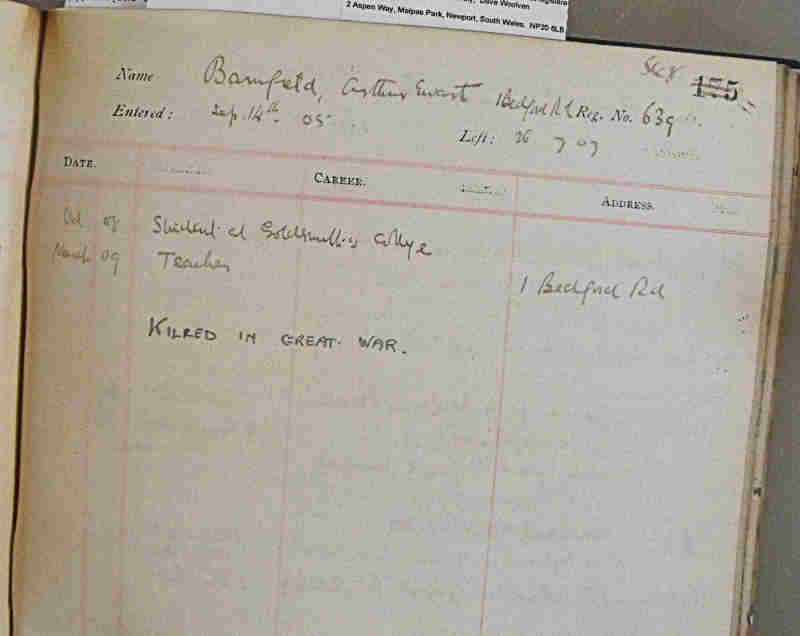 Dave Woolven
2 Aspen Way, Malpas Park, Newport, South Wales. NP20 6LB
155
Name Bamfield, Arthur Ewart 1 Bedford Rd Reg. No. 639
Entered: Sep. 14th. 05 Left: 26 7 07
DATE. CAREER. ADDRESS.
Oct 05 Student at Goldsmith's College
March 09 Teacher
1 Bedford Rd
KILLED IN GREAT WAR.